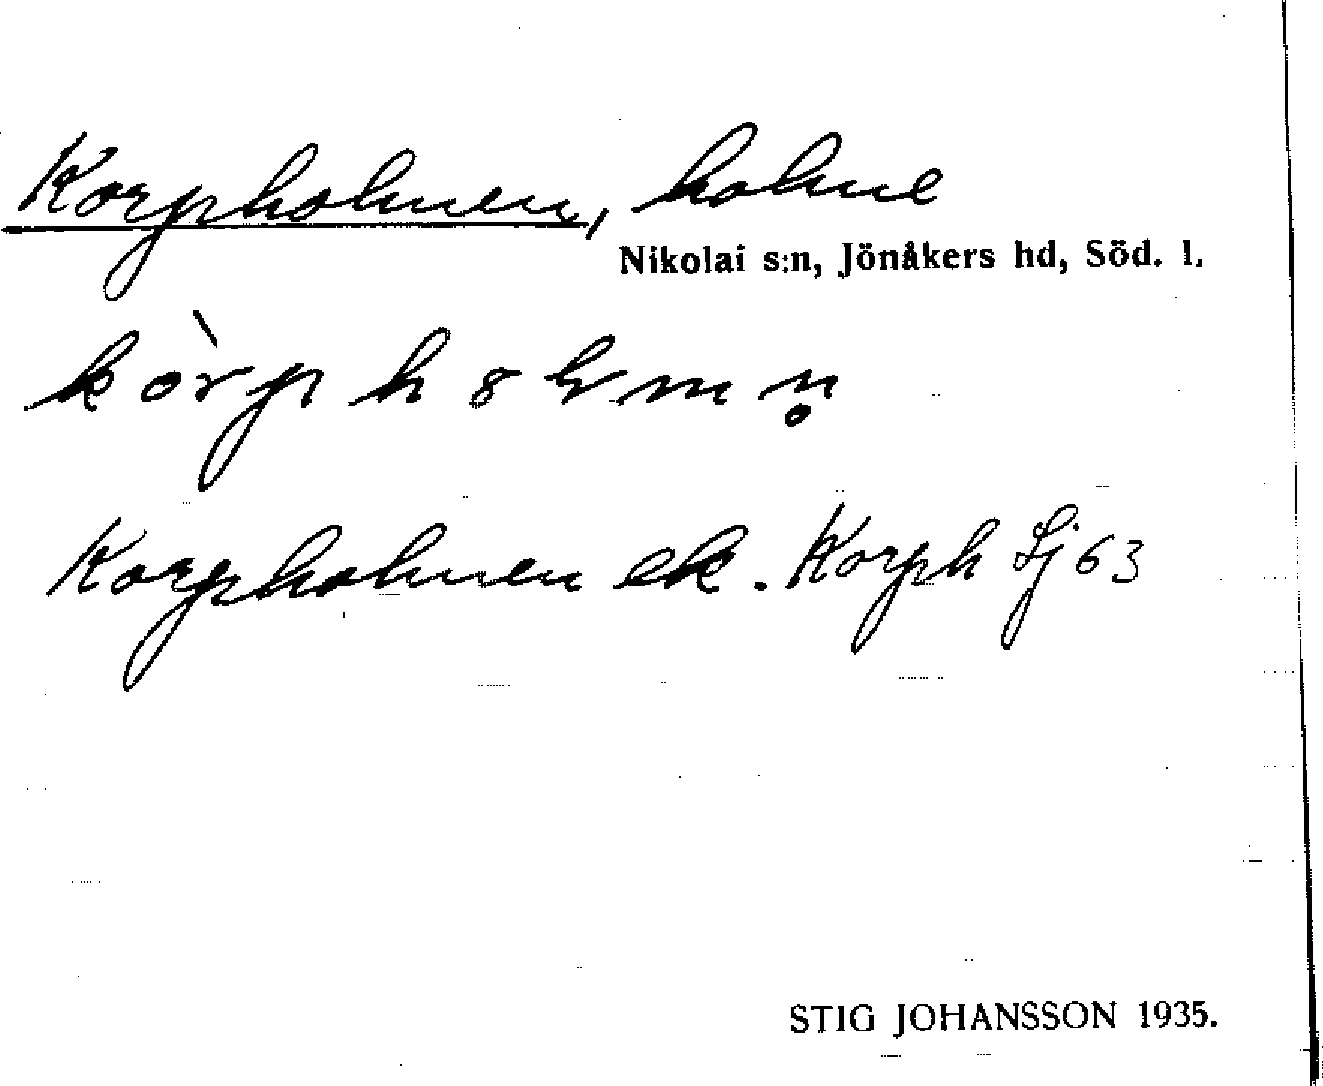 Korpholmen, holme
Nikolai s:n, Jönåkers hd, Söd. l.
Korpholmen ek. Korph Sj 63
STIG JOHANSSON 1935.